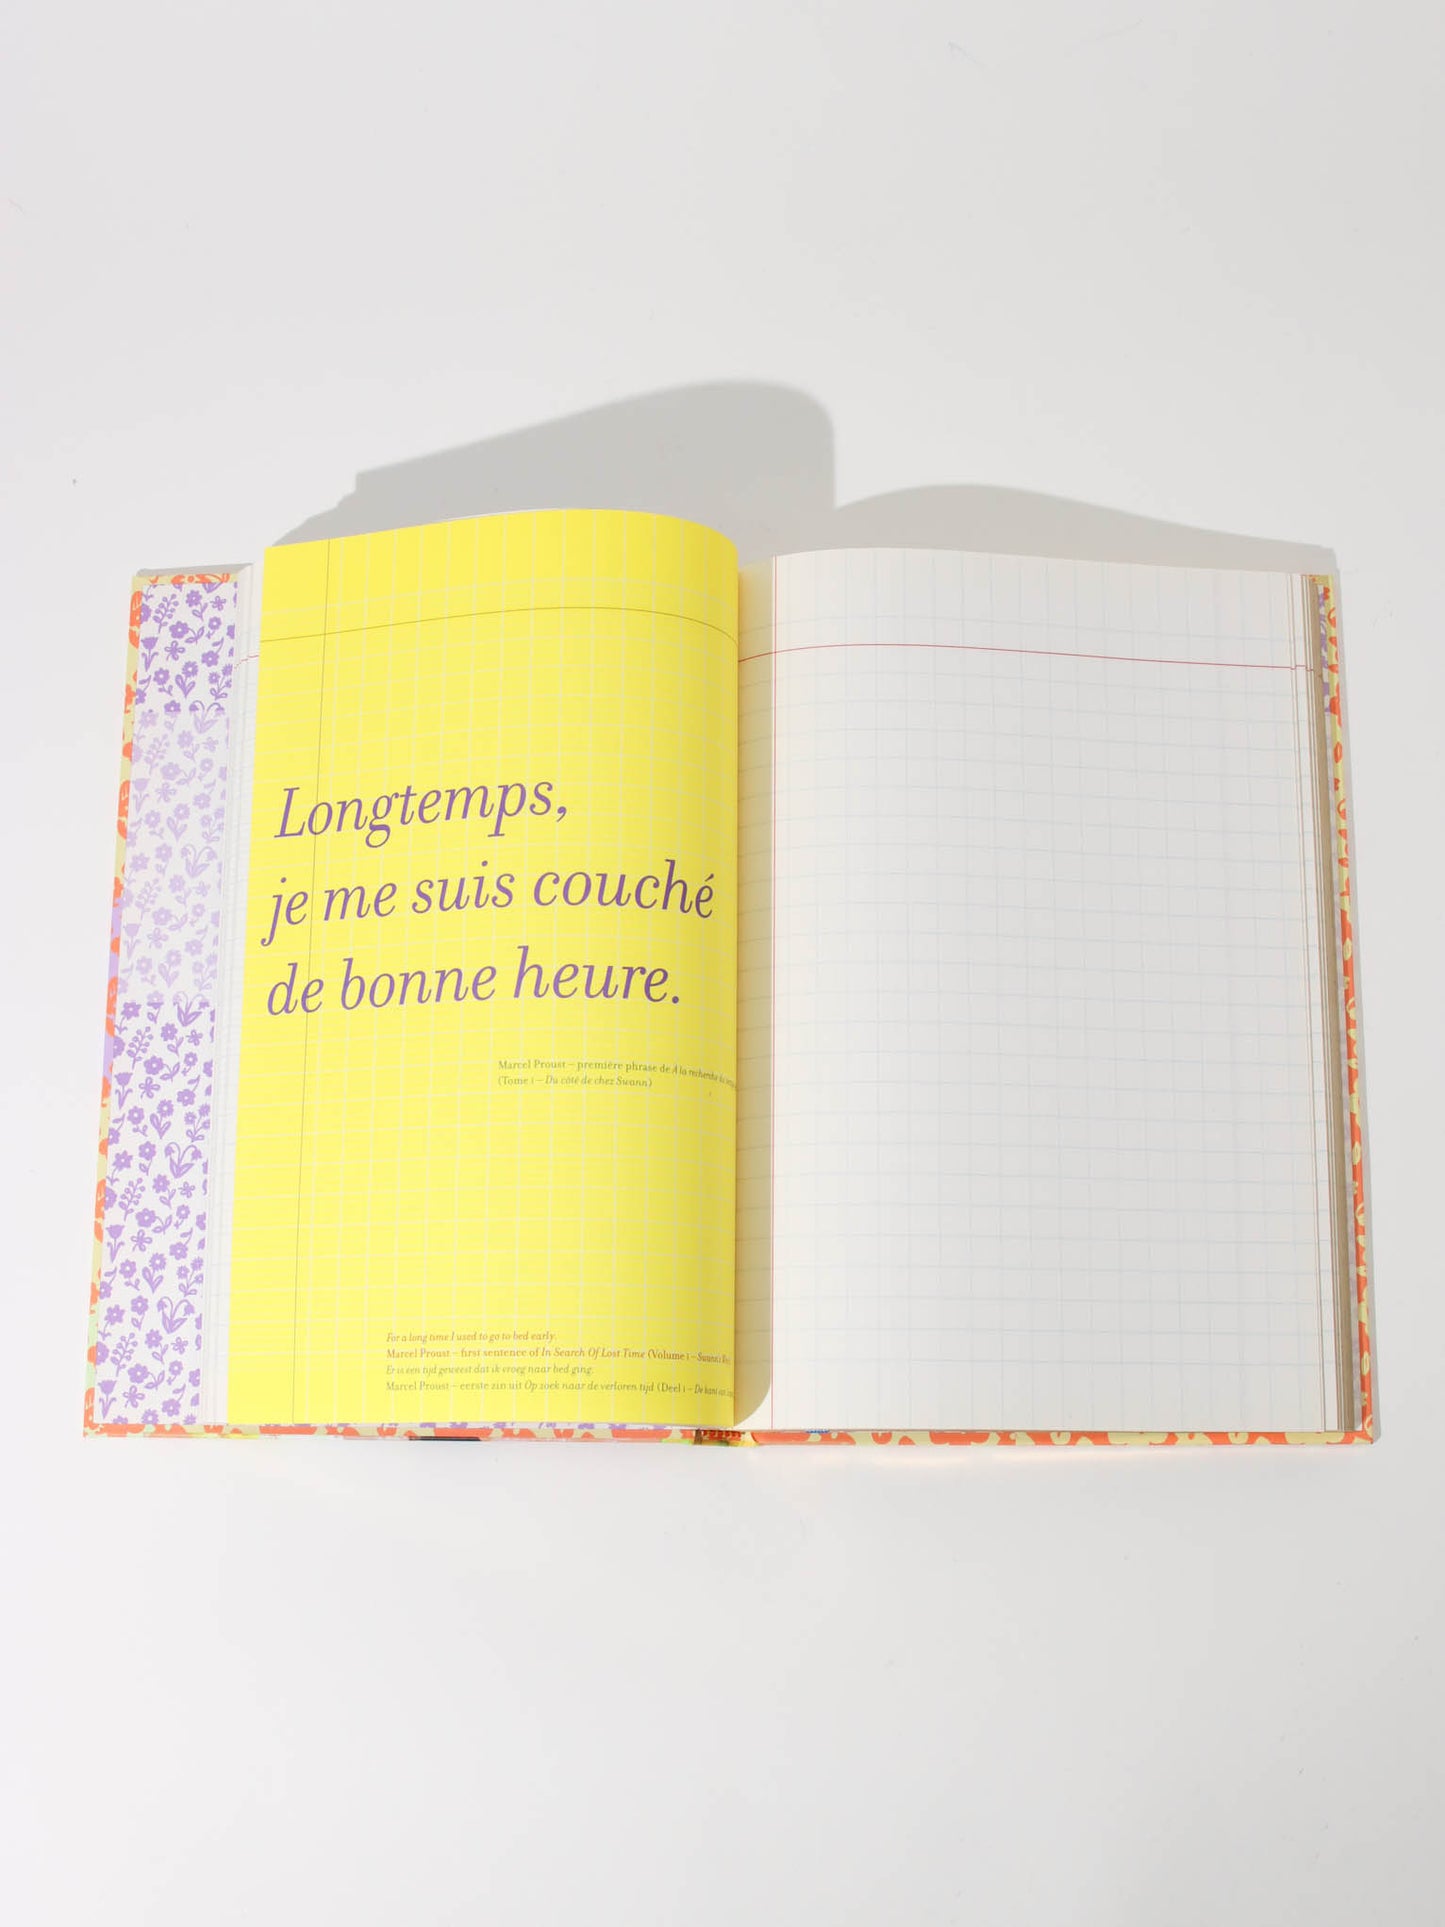 Longtemps,
je me suis couché
de bonne heure.
Marcel Proust – première phrase de A la recherche du
(Tome 1 – Du côté de chez Swann)
For a long time I used to go to bed early.
Marcel Proust – first sentence of In Search Of Lost Time (Volume 1 – Swann's
Er is een tijd geweest dat ik vroeg naar bed ging.
Marcel Proust – eerste zin uit Op zoek naar de verloren tijd (Deel 1 – De kant